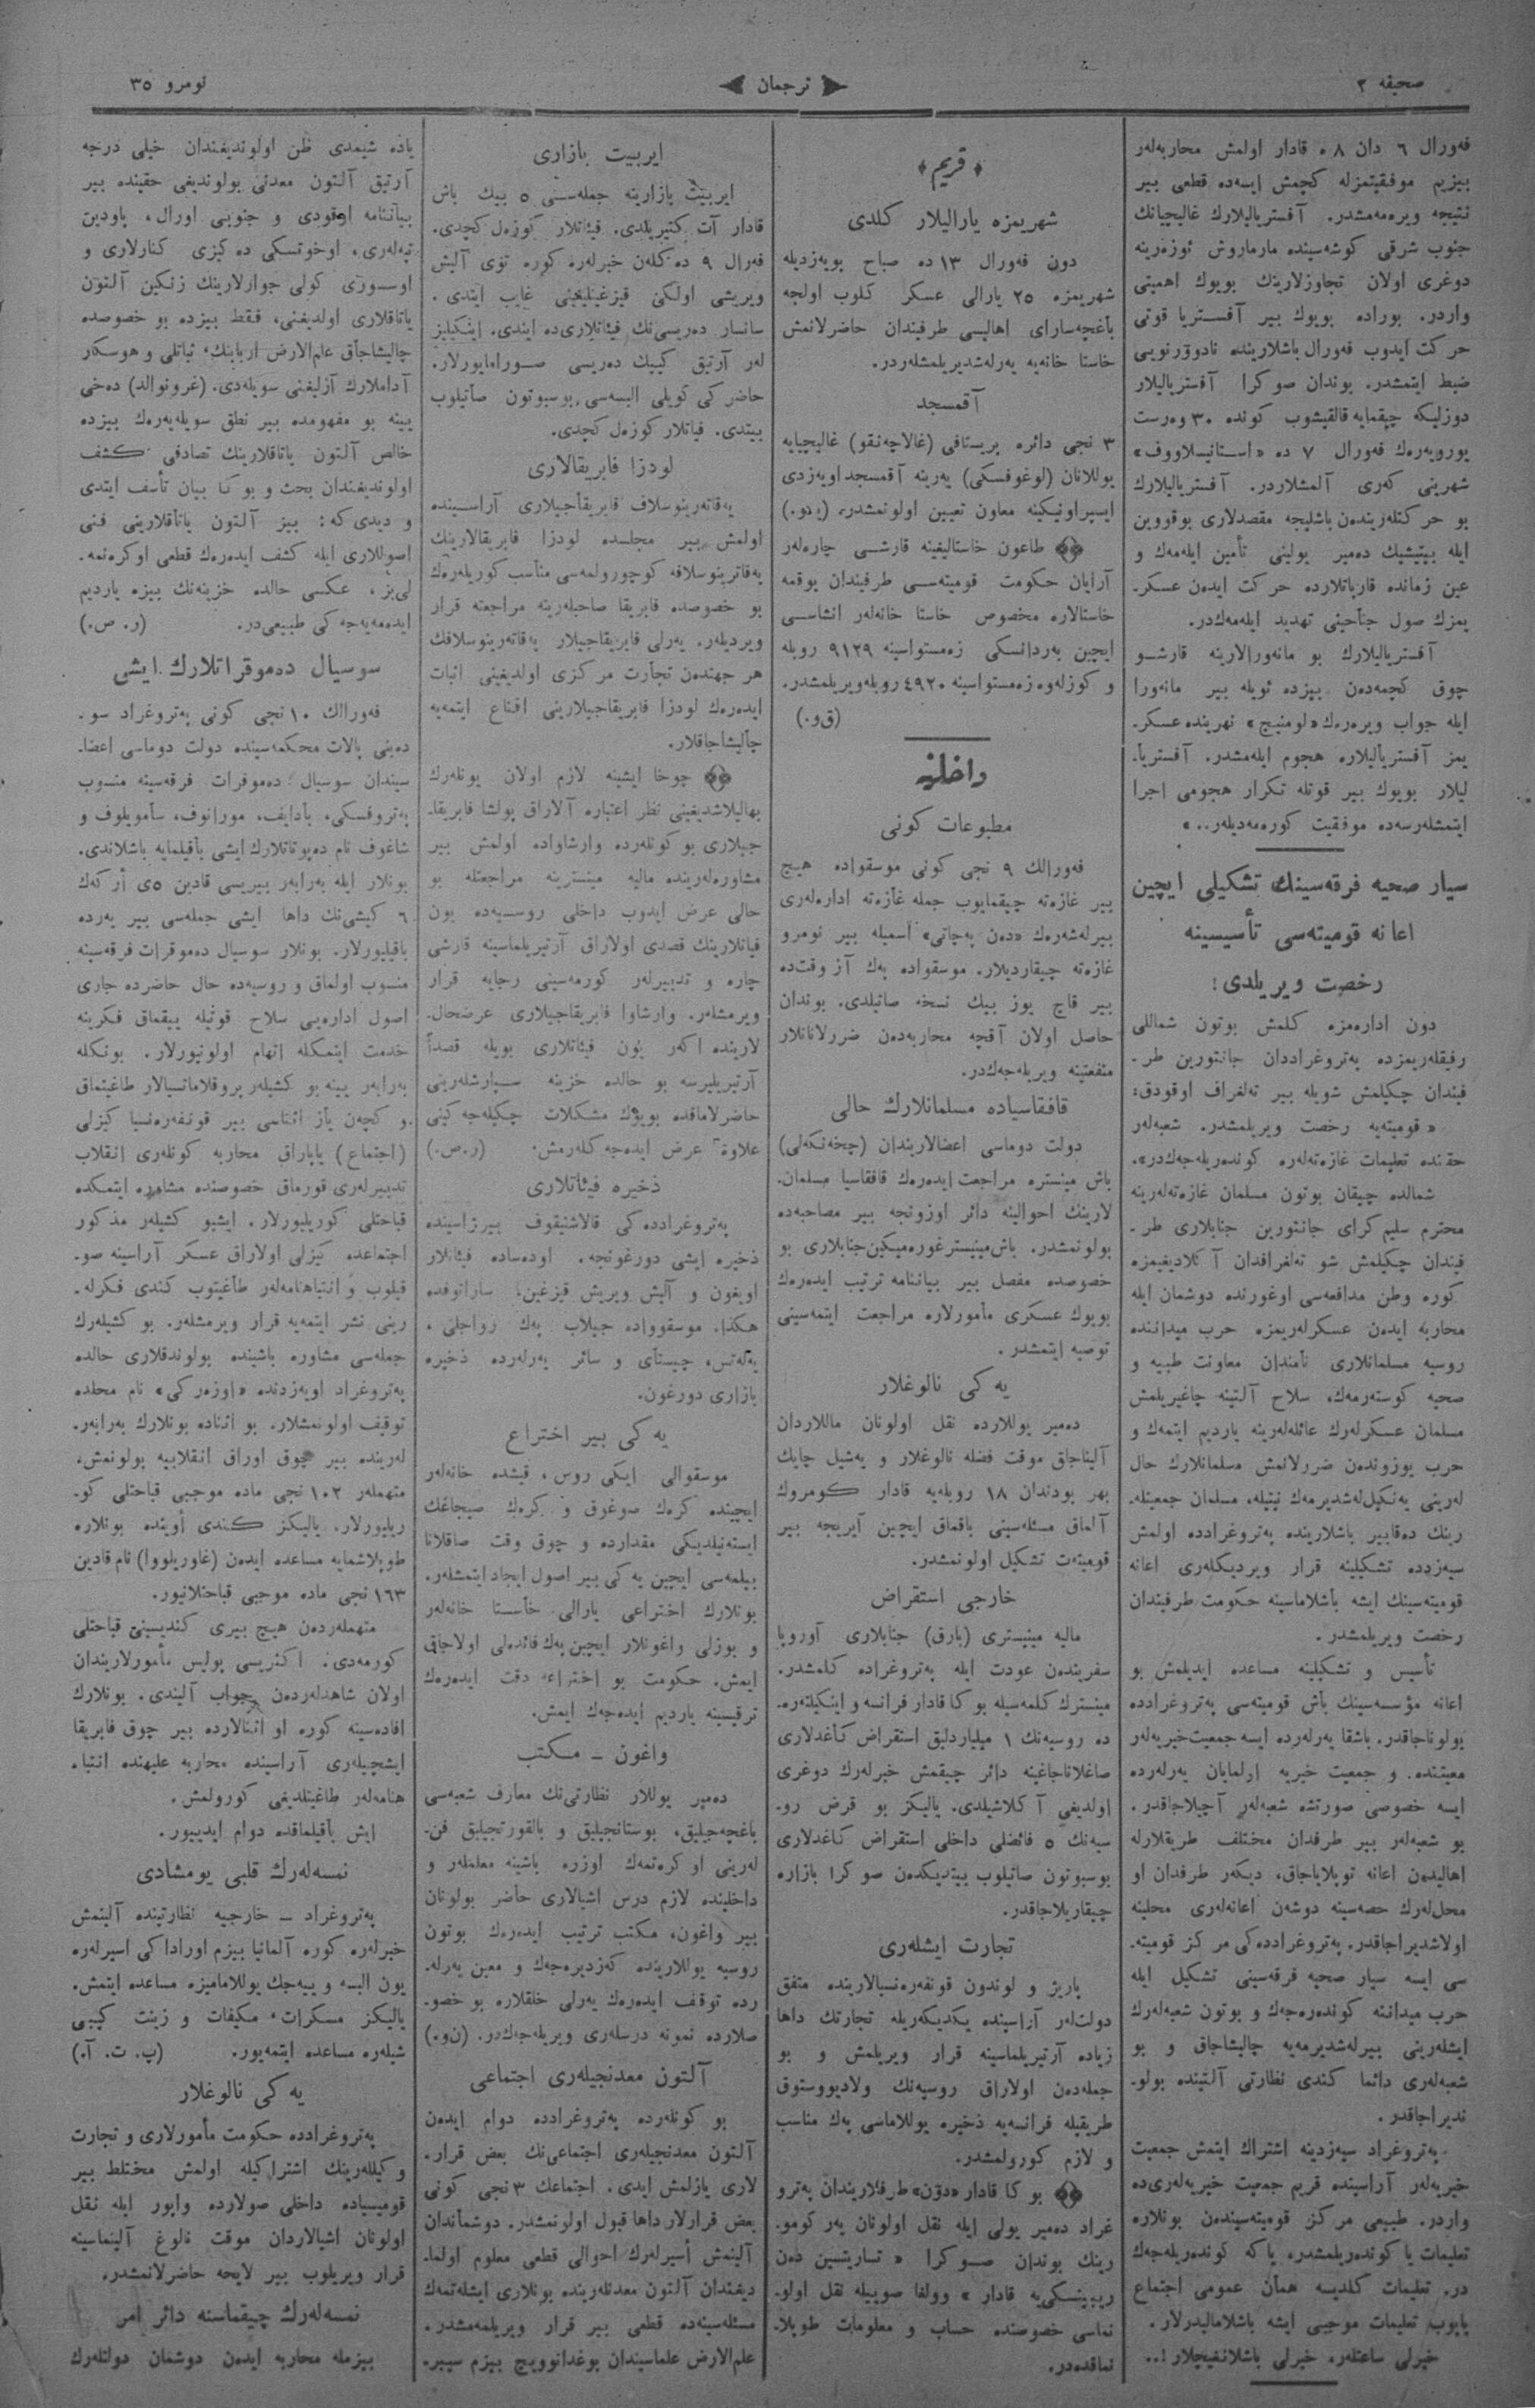 صحيفه ٢
ترجمان
نومرو ٣٥
فه‌ورال ٦ دان ٨ ه قادار اولمش محاربه‌لەر
بيزيم موفقيتمزله كچمش ايسه‌ده قطعی بير
نتيجه ويره‌مه‌مشدر. آفستريالیلارك غاليچيانك
جنوب شرقی كوشه‌سينده مارماروش ئوزه‌رينه
دوغری اولان تجاوزلارينك بويوك اهميتی
واردر. بوراده بويوك بير آفستريا قوتی
حركت ايدوب فه‌ورال باشلارينده نادوورنويی
ضبط ايتمشدر. بوندان صوكرا آفستريالیلار
دوزليكه چيقمايه قالقيشوب كونده ٣٠ وه‌رست
يورويه‌رەك فه‌ورال ٧ ده «استانيسلاووف»
شهرينی كه‌ری آلمشلاردر. آفستريالیلارك
بو حركتله‌رينده‌ن باشليجه مقصدلاری بوقووين
ايله بيتيشيك ده‌مير يولينی تأمين ايله‌مەك و
عين زمانده قارپاتلارده حركت ايده‌ن عسكر-
يمزك صول جناحينی تهديد ايله‌مه‌ك‌در.
آفستريالیلارك بو مانه‌ورالارينه قارشو
چوق كچمه‌ده‌ن بيزده ئويله بير مانه‌ورا
ايله جواب ويره‌رەك «لومنيچ» نهرينده عسكر-
يمز آفستريالیلاره هجوم ايله‌مشدر. آفستريا-
ليلار بويوك بير قوتله تكرار هجومی اجرا
ايتمشله‌رسه‌ده موفقيت كوره‌مه‌ديله‌ر.. »
سيار صحيه فرقه‌سينك تشكيلی ايچين
اعانه قوميته‌سی تأسيسينه
رخصت ويريلدی!
دون اداره‌مزه كلمش بوتون شماللی
رفيقله‌ريمزده په‌تروغراددان جانتورين طر-
فيندان چكيلمش شويله بير ته‌لغراف اوقودق:
« قوميته‌يه رخصت ويريلمشدر. شعبه‌لەر
حقنده تعليمات غازه‌ته‌لەره كونده‌ريله‌جه‌ك‌در».
شمالده چيقان بوتون مسلمان غازه‌ته‌له‌رينه
محترم سليم كرای جانتورين جنابلاری طر-
فيندان چكيلمش شو ته‌لغرافدان آكلاديغيمزه
كوره وطن مدافعه‌سی اوغورنده دوشمان ايله
محاربه ايده‌ن عسكرله‌ريمزه حرب ميداننده
روسيه مسلمانلاری نامندان معاونت طبيه و
صحيه كوسته‌رمەك، سلاح آلتينه چاغيريلمش
مسلمان عسكرله‌رك عائله‌له‌رينه يارديم ايتمه‌ك و
حرب يوزونده‌ن ضررلانمش مسلمانلارك حال
له‌رينی يه‌نكيلله‌شديرمەك نيتيله، مسلمان جمعيتله-
رينك ده‌قابير باشلارينده په‌تروغرادده اولمش
سيه‌زدده تشكيلينه قرار ويرديكله‌ری اعانه
قوميته‌سينك ايشه باشلاماسينه حكومت طرفيندان
رخصت ويريلمشدر.
تأسيس و تشكيلينه مساعده ايديلمش بو
اعانه مؤسسه‌سينك باش قوميته‌سی په‌تروغرادده
بولوناجاقدر. باشقا يه‌رله‌رده ايسه جمعيت‌خيريه‌لەر
معيتنده. و جمعيت خيريه اولمايان يه‌رله‌رده
ايسه خصوصی صورتده شعبه‌لەر آچيلاجاقدر.
بو شعبه‌لەر بير طرفدان مختلف طريقلارله
اهاليده‌ن اعانه توپلاياجاق، ديكه‌ر طرفدان او
محل‌له‌رك حصه‌سينه دوشه‌ن اعانه‌له‌ری محلينه
اولاشديراجاقدر. په‌تروغرادده‌كی مركز قوميته-
سی ايسه سيار صحيه فرقه‌سينی تشكيل ايله
حرب ميداننه كونده‌ره‌جەك و بوتون شعبه‌له‌رك
ايشله‌رينی بيرله‌شديرمه‌يه چاليشاجاق و بو
شعبه‌له‌ری دائما كندی نظارتی آلتينده بولو-
نديراجاقدر.
په‌تروغراد سيه‌زدينه اشتراك ايتمش جمعيت
خيريه‌لەر آراسينده قريم جمعيت خيريه‌له‌ری‌ده
واردر. طبيعی مركز قوميته‌سينده‌ن بونلاره
تعليمات يا كونده‌ريلمشدر، ياكه كونده‌ريله‌جەك
در. تعليمات كلديسه همان عمومی اجتماع
ياپوب تعليمات موجبی ايشه باشلاماليدرلار.
خيرلی ساعتله‌ره خيرلی باشلانغيچلار!..
﴿ قريم ﴾
شهريمزه يارالیلار كلدی
دون فه‌ورال ١٣ ده صباح بويه‌زديله
شهريمزه ٢٥ يارالی عسكر كلوب اولجه
باغچه‌سارای اهاليسی طرفيندان حاضرلانمش
خاستا خانه‌يه يه‌رله‌شديريلمشله‌ردر.
آقمسجد
٣ نجی دائره پريستافی (غالاچه‌نقو) غاليچيايه
يوللانان (لوغوفسكی) يه‌رينه آقمسجد اويه‌زدی
ايسپراونيكينه معاون تعيين اولونمشدر.
طاعون خاستاليفينه قارشی چاره‌لەر
آرايان حكومت قوميته‌سی طرفيندان يوقمه
خاستالاره مخصوص خاستا خانه‌لەر انشاسی
ايچين به‌ردانسكی زه‌مستواسينه ٩١٢٩ روبله
و كوزله‌وه زه‌مستواسينه ٤٩٢٠ روبله ويريلمشدر.
(ق‌و.)
داخليه
مطبوعات كونی
فه‌ورالك ٩ نجی كونی موسقواده هيچ
بير غازه‌ته چيقمايوب جمله غازه‌ته اداره‌له‌ری
بيرله‌شه‌رەك «ده‌ن په‌چاتی» اسميله بير نومرو
غازه‌ته چيقارديلار. موسقواده پەك آز وقت‌ده
بير قاچ يوز بيك نسخه صاتيلدی. بوندان
حاصل اولان آقچه محاربه‌ده‌ن ضررلانانلار
منفعتينه ويريله‌جه‌ك‌در.
قافقاسياده مسلمانلارك حالی
دولت دوماسی اعضالاريندان (چخه‌نكه‌لی)
باش مينستره مراجعت ايده‌رەك قافقاسيا مسلمان-
لارينك احوالينه دائر اوزونجه بير مصاحبه‌ده
بولونمشدر. باش‌مينيستر غوره‌ميكين‌جنابلاری بو
خصوصده مفصل بير بياننامه ترتيب ايده‌رەك
بويوك عسكری مأمورلاره مراجعت ايتمه‌سينی
توصيه ايتمشدر.
يه‌كی نالوغلار
ده‌مير يوللارده نقل اولونان ماللاردان
آليناجاق موقت فضله نالوغلار و يه‌شيل چايك
بهر پودندان ١٨ روبله‌يه قادار كومروك
آلماق مسئله‌سينی باقماق ايچين آيريجه بير
قوميته‌ت تشكيل اولونمشدر.
خارجی استقراض
ماليه مينيستری (بارق) جنابلاری آوروپا
سفرينده‌ن عودت ايله په‌تروغراده كلمشدر.
مينسترك كلمه‌سيله بوكا قادار فرانسه و اينكيلته‌ره-
ده روسيه‌نك ١ ميلياردلیق استقراض كاغدلاری
صاغلاناجاغينه دائر چيقمش خبرله‌رك دوغری
اولديغی آكلاشيلدی. ياليكز بو قرض رو-
سيه‌نك ٥ فائضلی داخلی استقراض كاغدلاری
بوسبوتون صاتيلوب بيتديكده‌ن صوكرا بازاره
چيقاريلاجاقدر.
تجارت ايشله‌ری
پاريژ و لوندون قونفه‌ره‌نسيالارينده متفق
دولت‌لەر آراسينده يكديكه‌ريله تجارتك داها
زياده آرتيريلماسينه قرار ويريلمش و بو
جمله‌ده‌ن اولاراق روسيه‌نك ولاديووستوق
طريقيله فرانسه‌يه ذخيره يوللاماسی پەك مناسب
و لازم كورولمشدر.
بوكا قادار «دون» طرفلاريندان په‌ترو
غراد ده‌مير يولی ايله نقل اولونان يه‌ر كومو-
رينك بوندان صوكرا « تساريتسين ده‌ن
ريبينسكی‌يه قادار » وولغا صوييله نقل اولو-
نماسی خصوصنده حساب و معلومات طوپلا-
نماقده‌در.
ايربيت بازاری
ايربيت پازارينه جمله‌سی ٥ بيك باش
قادار آت كتيريلدی. فيئاتلار كوزەل كچدی.
فه‌رال ٩ ده كله‌ن خبرله‌ره كوره توی آليش
ويريشی اولكی قيزغينليغينی غايب ايتدی.
سانسار ده‌ريسی‌نك فيئاتلاری‌ده ايندی. اينكيليز
لەر آرتيق كيیك ده‌ريسی صورامايورلار.
حاضركی كويلی البسه‌سی بوسبوتون صاتيلوب
بيتدی. فياتلار كوزەل كچدی.
لودزا فابريقالاری
يه‌قاته‌رينوسلاف فابريقاجيلاری آراسينده
اولمش بير مجلسده لودزا فابريقالارينك
يه‌قاترينوسلافه كوچورولمه‌سی مناسب كوريله‌رەك
بو خصوصده فابريقا صاحبله‌رينه مراجعته قرار
ويرديلەر. يه‌رلی فابريقاجيلار يه‌قاته‌رينوسلافك
هر جهتده‌ن تجارت مركزی اولديغينی اثبات
ايده‌رەك لودزا فابريقاجيلارينی اقناع ايتمه‌يه
چاليشاجاقلار.
چوخا ايشينه لازم اولان يونله‌رك
بهاليلاشديغينی نظر اعتباره آلاراق پولشا فابريقا-
جيلاری بو كونله‌رده وارشاواده اولمش بير
مشاوره‌له‌رينده ماليه مينسترينه مراجعتله بو
حالی عرض ايدوب داخلی روسيه‌ده يون
فياتلارينك قصدی اولاراق آرتيريلماسينه قارشی
چاره و تدبيرلەر كورمه‌سينی رجايه قرار
ويرمشلەر. وارشاوا فابريقاجيلاری عرضحال-
لارينده اكه‌ر يون فيئاتلاری بويله قصداً
آرتيريليرسه بو حالده خزينه سپارشله‌رينی
حاضرلاماقده بويوك مشكلات چكيله‌جه‌كينی
علاوةً عرض ايده‌جه‌كله‌رمش. (ر.ص.)
ذخيره فيئاتلاری
په‌تروغرادده‌كی قالاشنيقوف بيرژاسينده
ذخيره ايشی دورغونجه. اوده‌ساده فيئاتلار
اويغون و آليش ويريش قيزغين، ساراتوفده
هكذا. موسقوواده جيلاب پەك رواجلی،
يه‌له‌تس، چيستاي و سائر يه‌رله‌رده ذخيره
بازاری دورغون.
يه‌كی بير اختراع
موسقوالی ايكی روس، قيشده خانه‌لەر
ايچينده كرەك صوغوق و كرەك صيجاغك
ايسته‌نيلديكی مقدارده و چوق وقت صاقلانا
بيلمه‌سی ايچين يه‌كی بير اصول ايجاد ايتمشلەر.
بونلارك اختراعی يارالی خاستا خانه‌لەر
و بوزلی واغونلار ايچين پەك فائده‌لی اولاجاق
ايمش. حكومت بو اختراعه دقت ايده‌رەك
ترقيسينه يارديم ايده‌جەك ايمش.
واغون ـ مكتب
ده‌مير يوللار نظارتی‌نك معارف شعبه‌سی
باغچه‌جيليق، بوستانجيليق و بالقورتجيليق فن-
له‌رينی اوكره‌تمەك اوزره باشينه معلملەر و
داخلينده لازم درس اشيالاری حاضر بولونان
بير واغون، مكتب ترتيب ايده‌رەك بوتون
روسيه يوللارينده كه‌زديره‌جەك و معين يه‌رله-
رده توقف ايده‌رەك يه‌رلی خلقلاره بو خصو-
صلارده نمونه درسله‌ری ويريله‌جه‌ك‌در. (ن‌و.)
آلتون معدنجيله‌ری اجتماعی
بو كونله‌رده په‌تروغرادده دوام ايده‌ن
آلتون معدنجيله‌ری اجتماعی‌نك بعض قرار-
لاری يازلمش ايدی. اجتماعك ٣ نجی كونی
بعض قرارلار داها قبول اولونمشدر. دوشماندان
آلينمش اسيرله‌رك احوالی قطعی معلوم اولما-
ديغندان آلتون معدنله‌رينده بونلاری ايشله‌تمەك
مسئله‌سينه‌ده قطعی بير قرار ويريلمه‌مشدر.
علم‌الارض علماسيندان بوغدانوويچ بيزم سيبر-
ياده شيمدی ظن اولونديغندان خيلی درجه
آرتيق آلتون معدنی بولونديغی حقينده بير
بياننامه اوقودی و جنوبی اورال، ياودين
تپه‌له‌ری، اوخوتسكی ده‌كيزی كنارلاری و
اوسسوری كولی جوارلارينك زنكين آلتون
ياتاقلاری اولديغنی، فقط بيزده بو خصوصده
چاليشاجاق علم‌الارض اربابنك، ثباتلی و هوسكار
آداملارك آزليغنی سويله‌دی. (غرونوالد) ده‌خی
يينه بو مفهومده بير نطق سويله‌يه‌رەك بيزده
خالص آلتون ياتاقلارينك تصادفی كشف
اولونديغندان بحث و بوكا بيان تأسف ايتدی
و ديدی‌كه: بيز آلتون ياتاقلارينی فنی
اصوللاری ايله كشف ايده‌رەك قطعی اوكره‌نمه-
لی‌يز، عكسی حالده خزينه‌نك بيزه يارديم
ايده‌مه‌يه‌جه‌كی طبيعی‌در. (ر. ص.)
سوسيال ده‌موقراتلارك ايشی
فه‌ورالك ١٠ نجی كونی په‌تروغراد سو-
ده‌بنی پالات محكمه‌سينده دولت دوماسی اعضا-
سيندان سوسيال ده‌موقرات فرقه‌سينه منسوب
په‌تروفسكی، بادايف، مورانوف، سامويلوف و
شاغوف نام ده‌پوتاتلارك ايشی باقيلمايه باشلاندی.
بونلار ايله به‌رابه‌ر بيريسی قادين ٥ی أركەك
٦ كيشی‌نك داها ايشی جمله‌سی بير يه‌رده
باقيليورلار. بونلار سوسيال ده‌موقرات فرقه‌سينه
منسوب اولماق و روسيه‌ده حال حاضرده جاری
اصول اداره‌يی سلاح قوتيله ييقماق فكرينه
خدمت ايتمكله اتهام اولونيورلار. بونكله
به‌رابه‌ر يينه بو كشيلەر پروقلاماتسيالار طاغيتماق
و كچه‌ن ياز اثناسی بير قونفه‌ره‌نسيا كيزلی
(اجتماع) ياپاراق محاربه كونله‌ری انقلاب
تدبيرله‌ری قورماق خصوصنده مشاوره ايتمكده
قباحتلی كوريليورلار. ايشبو كشيلەر مذكور
اجتماعده كيزلی اولاراق عسكر آراسينه صو-
قيلوب و انتباهنامه‌لەر طاغيتوب كندی فكرله-
رينی نشر ايتمه‌يه قرار ويرمشلەر. بو كشيله‌رك
جمله‌سی مشاوره باشينده بولوندقلاری حالده
په‌تروغراد اويه‌زدنده «اوزه‌ركی» نام محلده
توقيف اولونمشلار. بو اثناده بونلارك به‌رابه‌ر-
له‌رينده بير چوق اوراق انقلابيه بولونمش،
متهملەر ١٠٢ نجی ماده موجبی قباحتلی كو-
ريليورلار. ياليكز كندی أوينده بونلاره
طوپلاشمايه مساعده ايده‌ن (غاوريلووا) نام قادين
١٦٣ نجی ماده موجبی قباحتلانيور.
متهمله‌رده‌ن هيچ بيری كنديسينی قباحتلی
كورمه‌دی. اكثريسی پوليس مأمورلاريندان
اولان شاهدله‌رده‌ن جواب آليندی. بونلارك
افاده‌سينه كوره او اثنالارده بير چوق فابريقا
ايشجيله‌ری آراسينده محاربه عليهنده انتباه
هنامه‌لەر طاغيتلديغی كورولمش.
ايش باقيلماقده دوام ايديیور.
نمسه‌له‌رك قلبی يومشادی
په‌تروغراد ـ خارجيه نظارتينده آلينمش
خبرله‌ره كوره آلمانيا بيزم اورادا كی اسيرله‌ره
يون البسه و ييه‌جك يوللامامیزه مساعده ايتمش.
ياليكز مسكرات، مكيفات و زينت كيبی
شيله‌ره مساعده ايتمه‌يور. (پ. ت. آ.)
يه‌كی نالوغلار
په‌تروغرادده حكومت مأمورلاری و تجارت
وكيلله‌رينك اشتراكيله اولمش مختلط بير
قوميسياده داخلی صولارده واپور ايله نقل
اولونان اشيالاردان موقت نالوغ آلينماسينه
قرار ويريلوب بير لايحه حاضرلانمشدر.
نمسه‌له‌رك چيقماسنه دائر امر
بيزمله محاربه ايده‌ن دوشمان دولتله‌رك